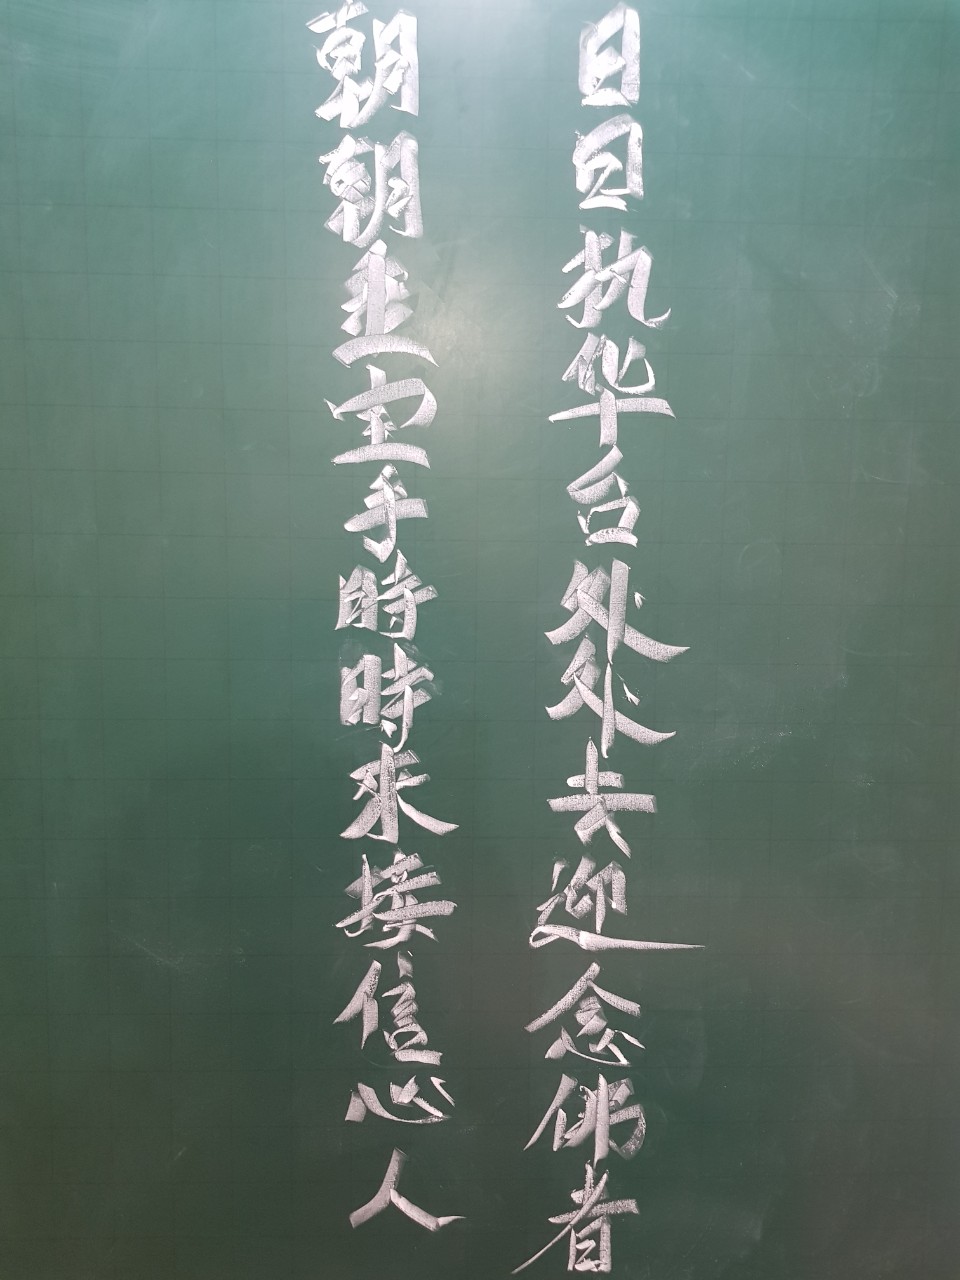 日日执华台处处去迎念佛者
朝朝垂宝手時時来接信心人